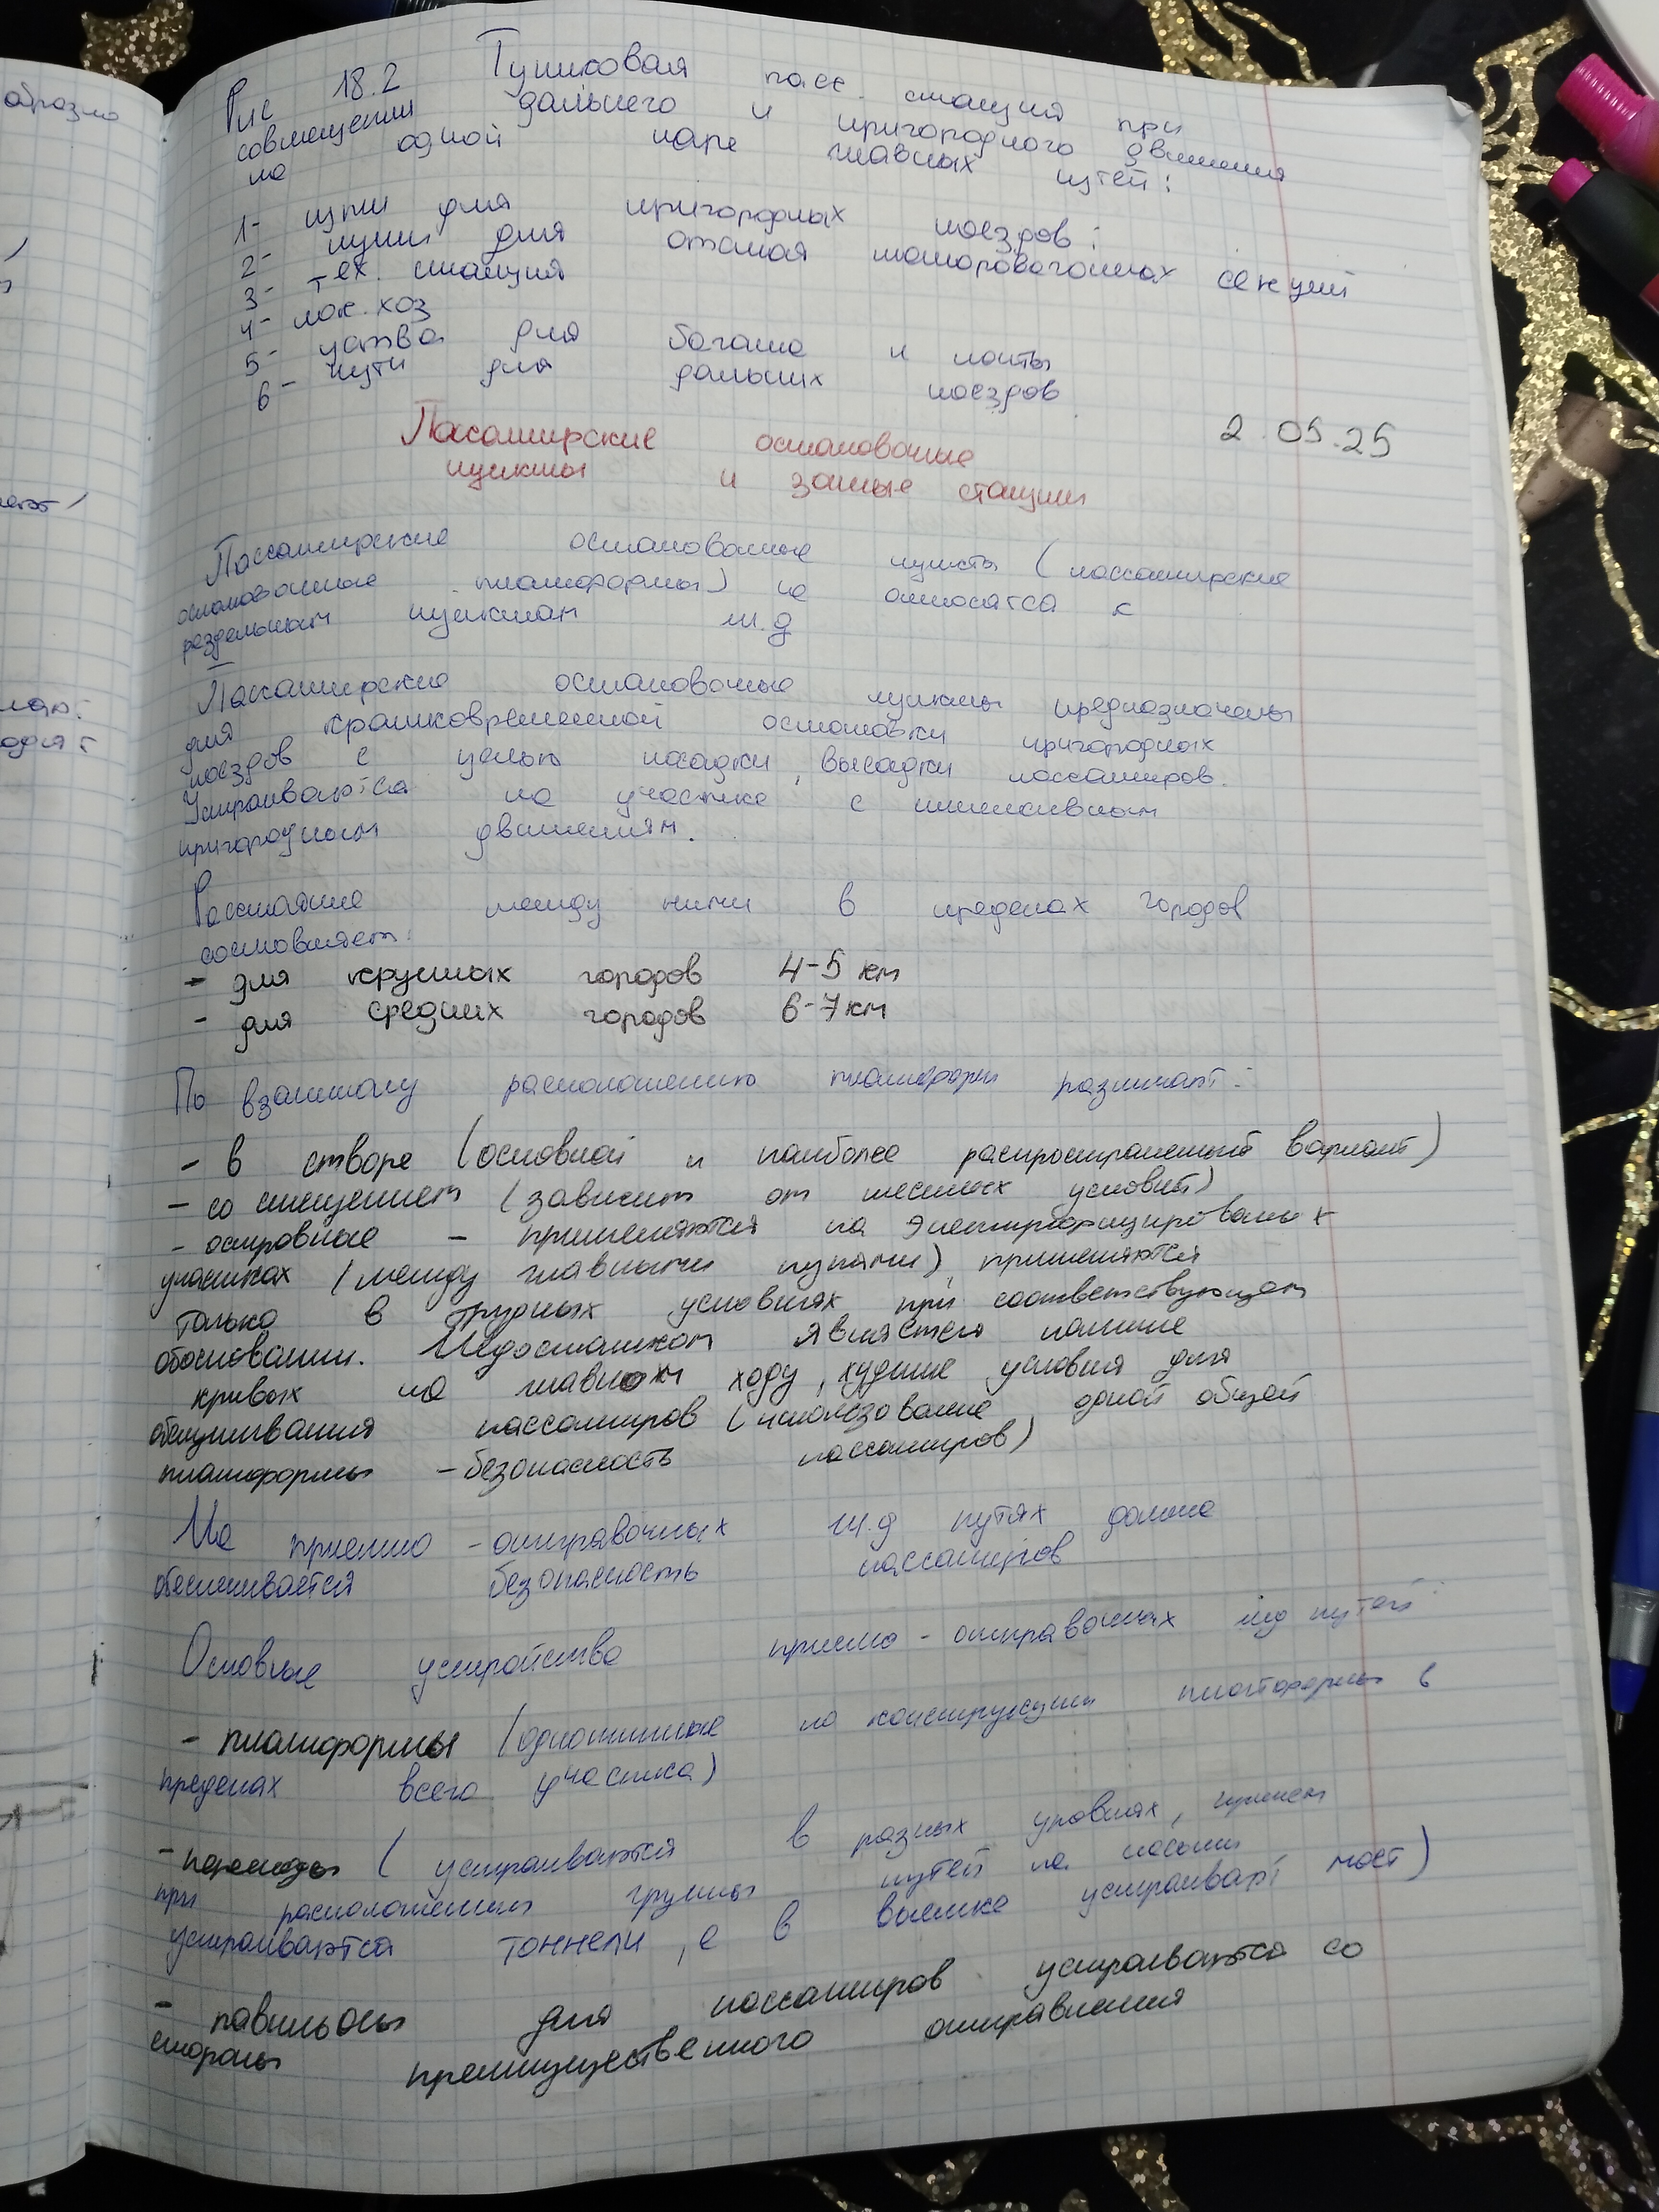 образно
Рис 18.2 Тупиковая пасс. станция при
совмещении дальнего и пригородного движения
на одной паре главных путей:
1- пути для пригородных поездов:
2- пути для отстоя моторовагонных секций
3- тех. станция
4- лок. хоз
5- уства для багажа и почты
6- пути для дальних поездов
2.05.25
Пассажирские остановочные
пункты и зонные станции
Пассажирские остановочные пункты (пассажирские
остановочные платформы) не относятся к
раздельным пунктам ж.д
Пассажирские остановочные пункты предназначены
для кратковременной остановки пригородных
поездов с целью посадки, высадки пассажиров.
Устраиваются на участке с интенсивном
пригородным движениям.
Расстояние между ними в пределах городов
составляет:
- для крупных городов 4-5 км
- для средних городов 6-7 км
По взаимному расположению платформ различают:
- в створе (основной и наиболее распространенный вариант)
- со смещением (зависит от местных условий)
- островные - применяются на электрифицированных
участках (между главными путями), применяются
только в трудных условиях при соответствующем
обосновании. Недостатком является наличие
кривых на главном ходу, худшие условия для
обслуживания пассажиров (использование одной общей
платформы - безопасность пассажиров)
На приемно-отправочных ж.д путях должна
обеспечивается безопасность пассажиров
Основные устройства приемо-отправочных жд путей:
- платформы (однотипные по конструкции платформы в
пределах всего участка)
- переходы (устраиваются в разных уровнях, причем
при расположении группы путей на насыпи
устраиваются тоннели, а в выемке устраивают мост)
- павильоны для пассажиров устраиваются со
стороны преимущественного отправления